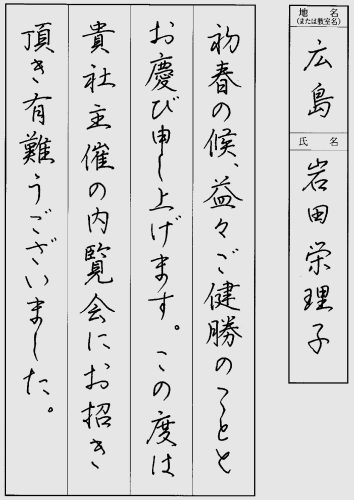 地名
(または教室名)
広島
氏名
岩田栄理子
初春の候、益々ご健勝のことと
お慶び申し上げます。この度は
貴社主催の内覧会にお招き
頂き有難うございました。